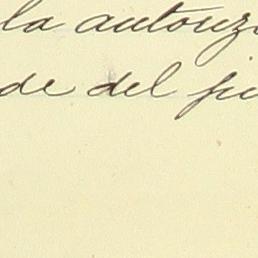 la autoriz
de del fu